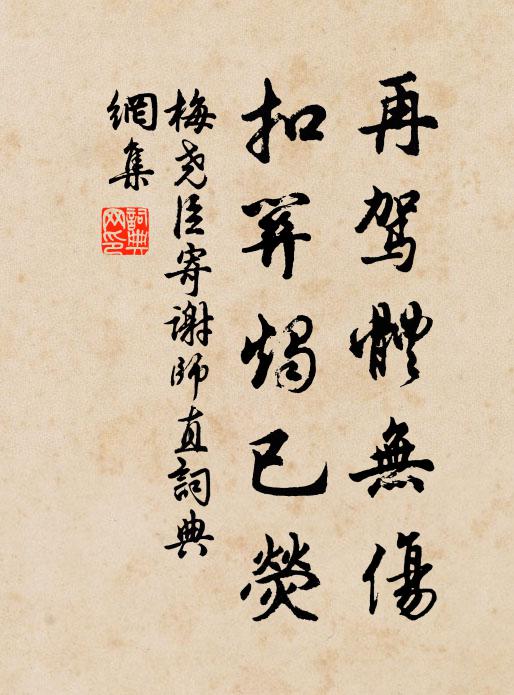 再駕體無傷
扣燭已熒
梅堯臣寄謝師直詞典
網集
詞典
网印